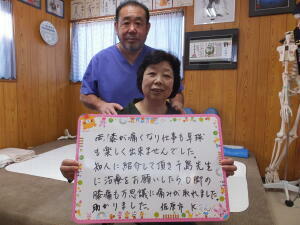 両膝が痛くなり仕事も卓球
も楽しく出来ませんでした
知人に紹介して頂き千島先生
に治療をお願いしたら
膝痛も不思議に痛みが取れました
助かりました。 佐原市 K